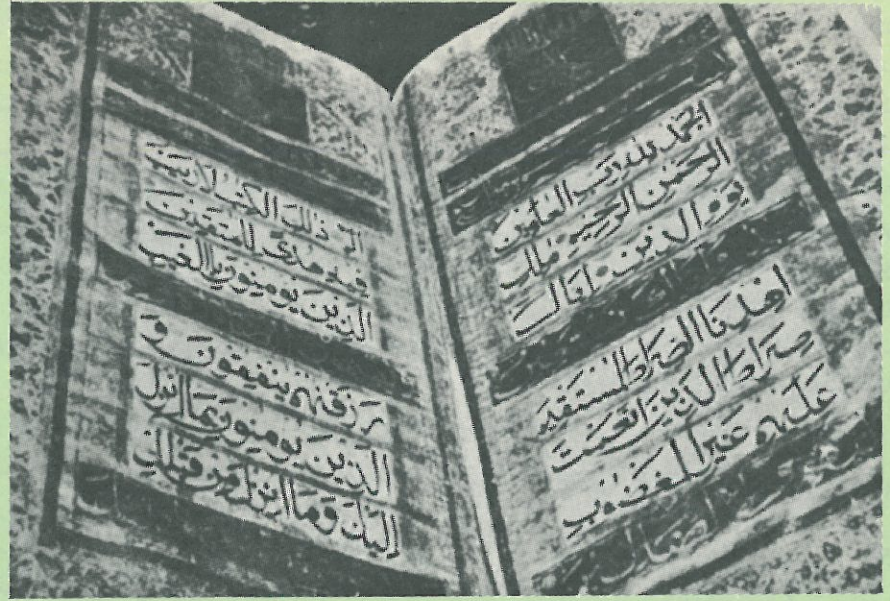 الحمد لله رب العالمين
الرحمن الرحيم ملك
يوم الدين اياك
اهدنا الصراط المستقيم
صراط الذين انعمت
عليهم غير المغضوب
الم ذلك الكتب لا ريب
فيه هدى للمتقين
الذين يومنون بالغيب
رزقنهم ينفقون و
الذين يومنون بما انزل
اليك وما انزل من قبلك